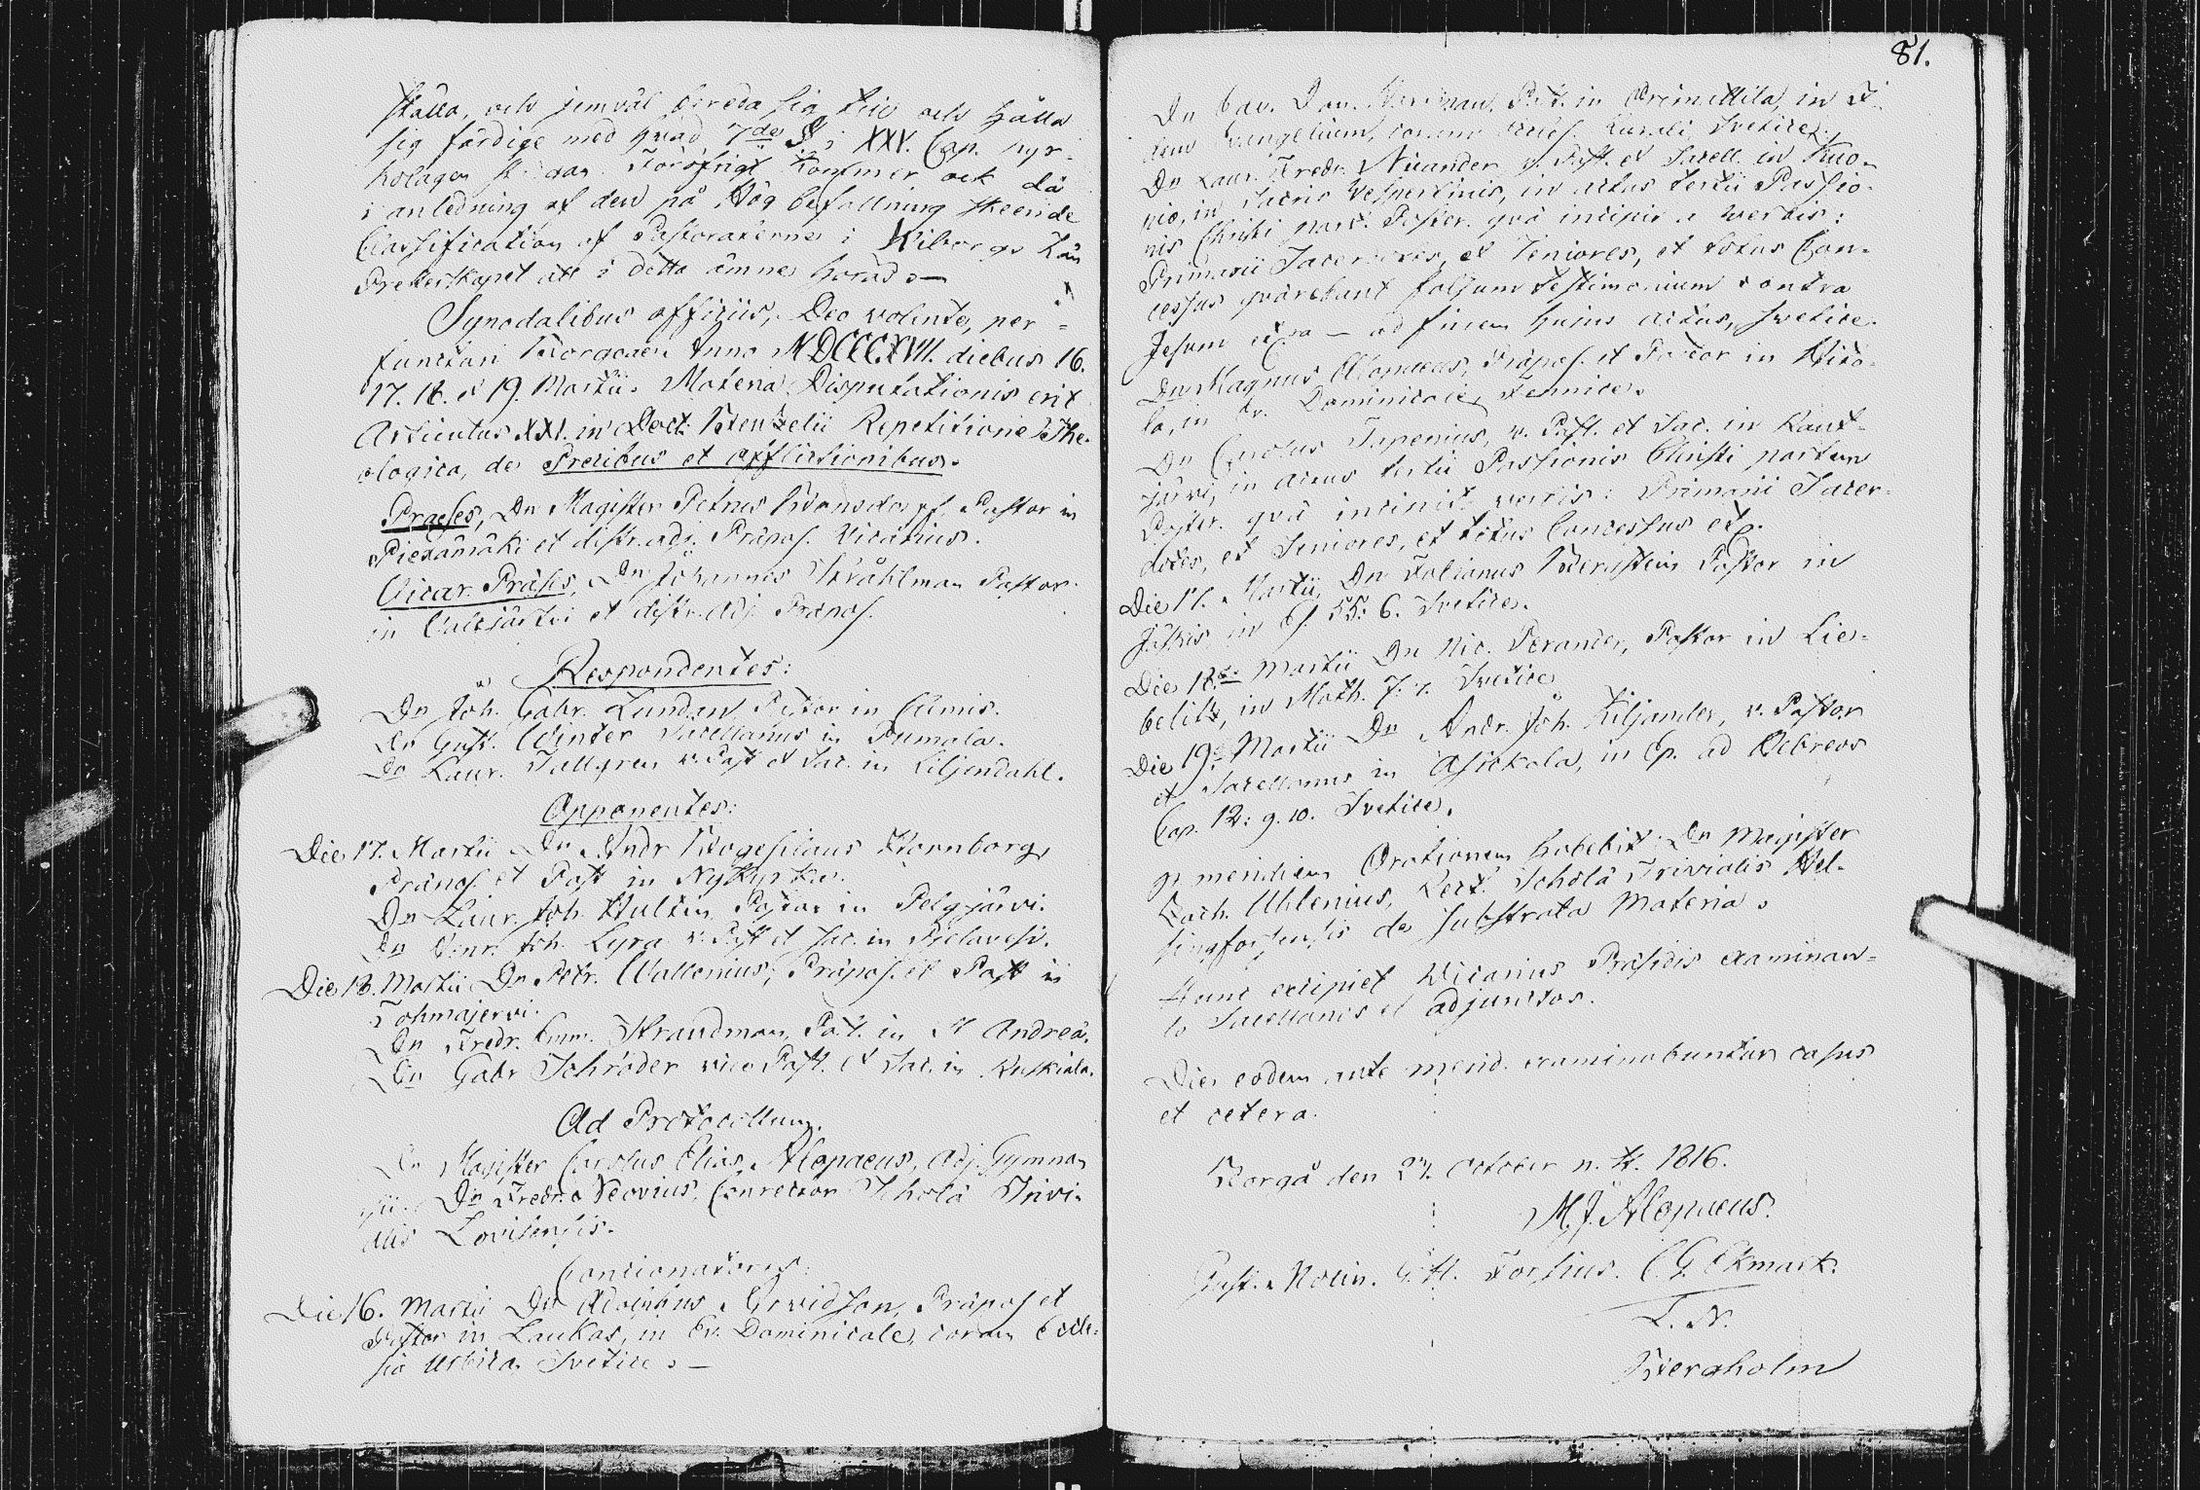 ställa, och jemväl bereda sig till och hålla
sig färdige med hvad 7de § i XXV. Cap. Kyr-
kolagen Föröfrigt kommer ock då
i anledning af den på Hög befallning skeende
Classification af Pastoraterne i Wiborgs Län
Presterskapet att i detta ämne höras.—
Synodalibus officiis, Deo volente, per-
functuri Borgoae Anno MDCCCXVII. diebus 16.
17. 18. et 19. Martii. Materia Disputationis erit
Articulus XXI. in Doct. Benzelii Repetitione The-
ologica, de Precibus et afflictionibus.
Praeses, Dn Magister Petrus Pastor in
Piexämäki et distr. adj. Präpos. Vicarius.
Vicar. Präses, Dn Johannes Stråhlman Pastor
in Walkjärwi et distr. Adj. Präpos.
Respondentes:
Dn Joh. Gabr. Lundan Pastor in Elimä.
Dn Gust. Winter Sacellanus in Pumala.
Dn Laur. Tallgren v. Past et Sac. in Liljendahl.
Opponentes:
Die 17. Martii Dn Andr Bogeslaus Hornborg,
Präpos. et Past in Nykyrka.
Dn Laur. Joh. Hultin Pastor in Pelgjärvi.
Dn Henr. Joh. Lyra v. Past et Sac. in Pielavesi.
Die 18. Martii Dn Petr. Wallenius, Präpos. et Past in
Tohmajervi.
Dn Fredr. Emm. Strandman, Past. in St Andreä.
Dn Gabr Schröder vice Past. et Sac. in Ruskiala.
Ad Protocollum.
Dn Magister Carolus Elias Alopaeus, Adj. Gymna-
sii. Dn Fredr. Neovius, Conrector Scholä Trivi-
alis Lovisensis.
Concionatores:
Die 16. Martii Dn Adolphus Arvidson, Präpos et
Pastor in Laukas, in Ev. Dominicale, coram Eccle-
sia Urbica Svetice.—
81.
Dn Past. in Artsiö
Evangelium, coram Eccles. Rurali Svetice.
Dn Laur. Fredr. Nicander v. Past. et Sacell. in Kuo-
pio, in Sacris Vespertinis, in actus tertii Passio-
nis Christi part. Poster. quä incipit a verbis:
Primarii Sacerdotes, et Seniores, et totus Con-
cessus quärebant falsum testimonium contra
Jesum — ad finem hujus actus, Svetice.
Dn Magnus Alopaeus, Präpos. et Pastor in Hito-
la, in Ev. Dominicale, Fennice.
Dn Carolus Tapenius, v. Past. et Sac. in Kauk-
järvi, in actus tertii Passionis Christi partem
Poster. quä incipit verbis: Primarii Sacer-
dotes, et Seniores, et totus Concessus etc.
Die 17. Martii Dn Pastor in
Jäskis, in Es 55: 6. Svetice.
Die 18de Martii Dn Nic. Perander, Pastor in Lie-
belitz, in Math. 7: 7. Svetice
Die 19de Martii Dn Andr. Joh. Kiljander, v. Pastor
et Sacellanus in Asickala, in Ep. ad Hebreos
Cap. 12: 9. 10. Svetice.
p. meridiem Orationem habebit Dn Magister
Zach. Uhlenius, Rect. Scholä Trivialis Hel-
singforsensis de substrata Materia.
Hunc excipiet Vicarius Präsidis examinan-
do Sacellanos et adjunctos.
Die eodem ante merid. examinabuntur casus
et cetera.
Borgå den 27. October n. st. 1816.
M. J. Alopaeus.
Gust. Molin. G. H. Forsius. C. G. Ekmark.
L. N.
Bergholm